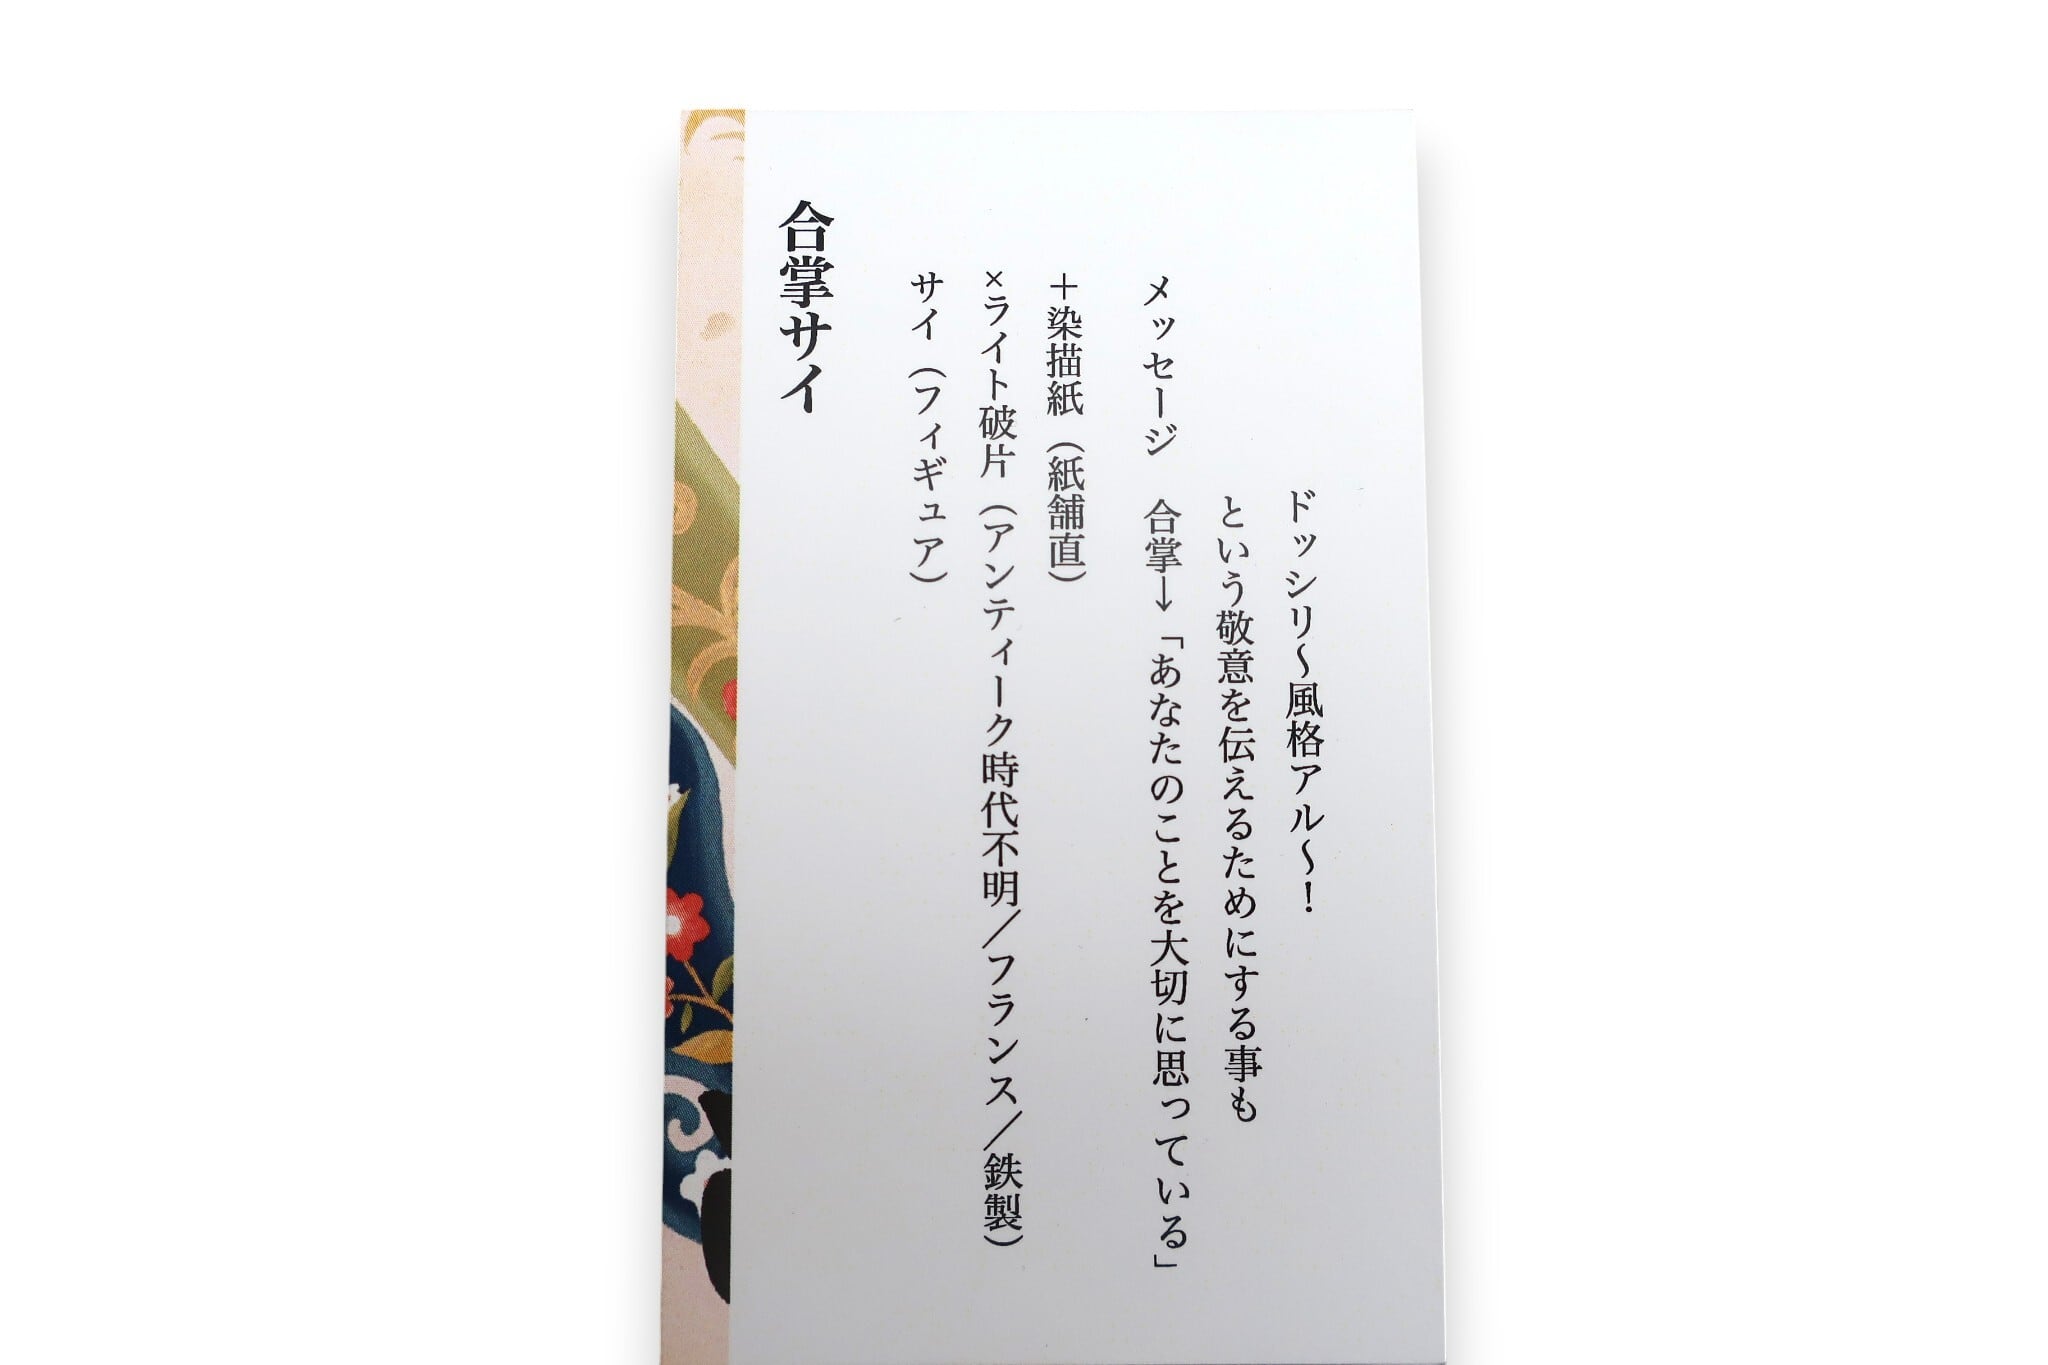 合掌サイ
サイ（フィギュア）
×ライト破片（アンティーク時代不明／フランス／鉄製）
＋染描紙（紙舗直）
メッセージ　合掌↓「あなたのことを大切に思っている」
という敬意を伝えるためにする事も
ドッシリ～風格アル～！